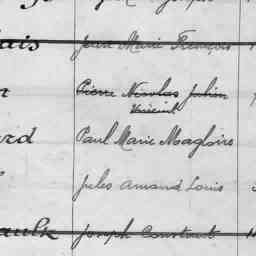 ais Jean Marie François
Pierre Nicolas Julien
Vincent
ard Paul Marie Magloire
Jules Amand Louis
ault Joseph Constant